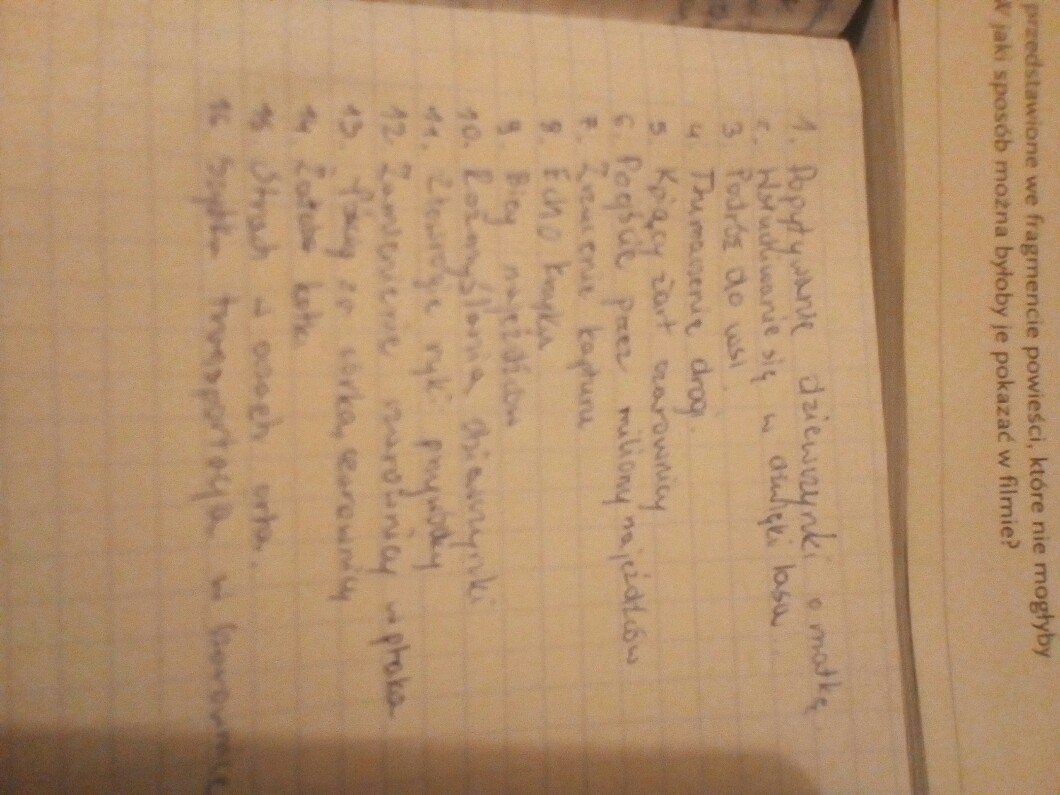 przedstawione we fragmencie powieści, które nie mogłyby
W jaki sposób można byłoby je pokazać w filmie?
1. Popytywanie dziewczynki o matkę
2. Wsłuchiwanie się w dźwięki lasu.
3 Podróż do wsi
4. Tłumaczenie drogi.
5. Kpiący żart czarownicy
6. Pogość przez miliony najeźdźców
7. Zrzucenie kaptura
8. Echo krzyku
9. Bieg najeźdźców
10. Rozmyślania dziewczynki
11. Złowrogie ryki przywódcy
12. Zamienienie czarownicy w ptaka
13. orka, czarownicy
14. Żałoba kotka
15. Strach w oczach orka.
16 transportacja w